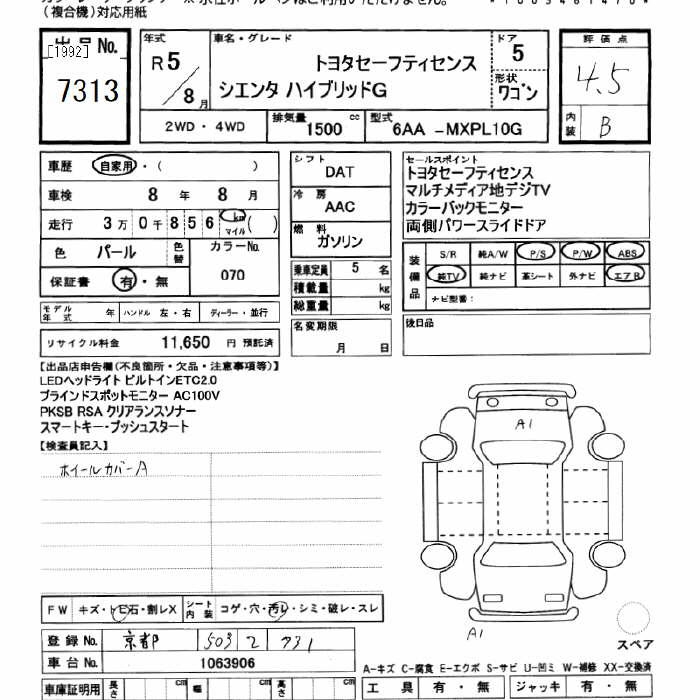 (複合機)対応用紙
出品No.
[1992]
7313
年式
R5 / 8月
車名・グレード
トヨタセーフティセンス
シエンタ ハイブリッドG
ドア
5
形状
ワゴン
評価点
4.5
内装
B
2WD・4WD
排気量 1500 cc
型式 6AA -MXPL10G
車歴 自家用・( )
車検 8年 8月
走行 3万0千856 km マイル ( )
色 パール 色替
カラーNo. 070
保証書 有・無
シフト
DAT
冷房
AAC
燃料
ガソリン
乗車定員 5 名
積載量 kg
総重量 kg
セールスポイント
トヨタセーフティセンス
マルチメディア地デジTV
カラーバックモニター
両側パワースライドドア
装備品
S/R 純A/W P/S P/W ABS
純TV 純ナビ 革シート 外ナビ エアB
ナビ型番:
モデル年式 年 ハンドル 左・右 ディーラー・並行
リサイクル料金 11,650 円 預託済
名変期限
月 日
後日品
【出品店申告欄(不良箇所・欠品・注意事項等)】
LEDヘッドライト ビルトインETC2.0
ブラインドスポットモニター AC100V
PKSB RSA クリアランスソナー
スマートキー・プッシュスタート
【検査員記入】
ホイールカバーA
A1
A1
スペア
FW キズ・トビ石・割レX
シート内装 コゲ・穴・汚レ・シミ・破レ・スレ
登録No. 京都 503 2 731
車台No. 1063906
A-キズ C-腐食 E-エクボ S-サビ U-凹ミ W-補修 XX-交換済
車庫証明用 長さ cm 幅 cm 高さ cm
工具 有・無 ジャッキ 有・無